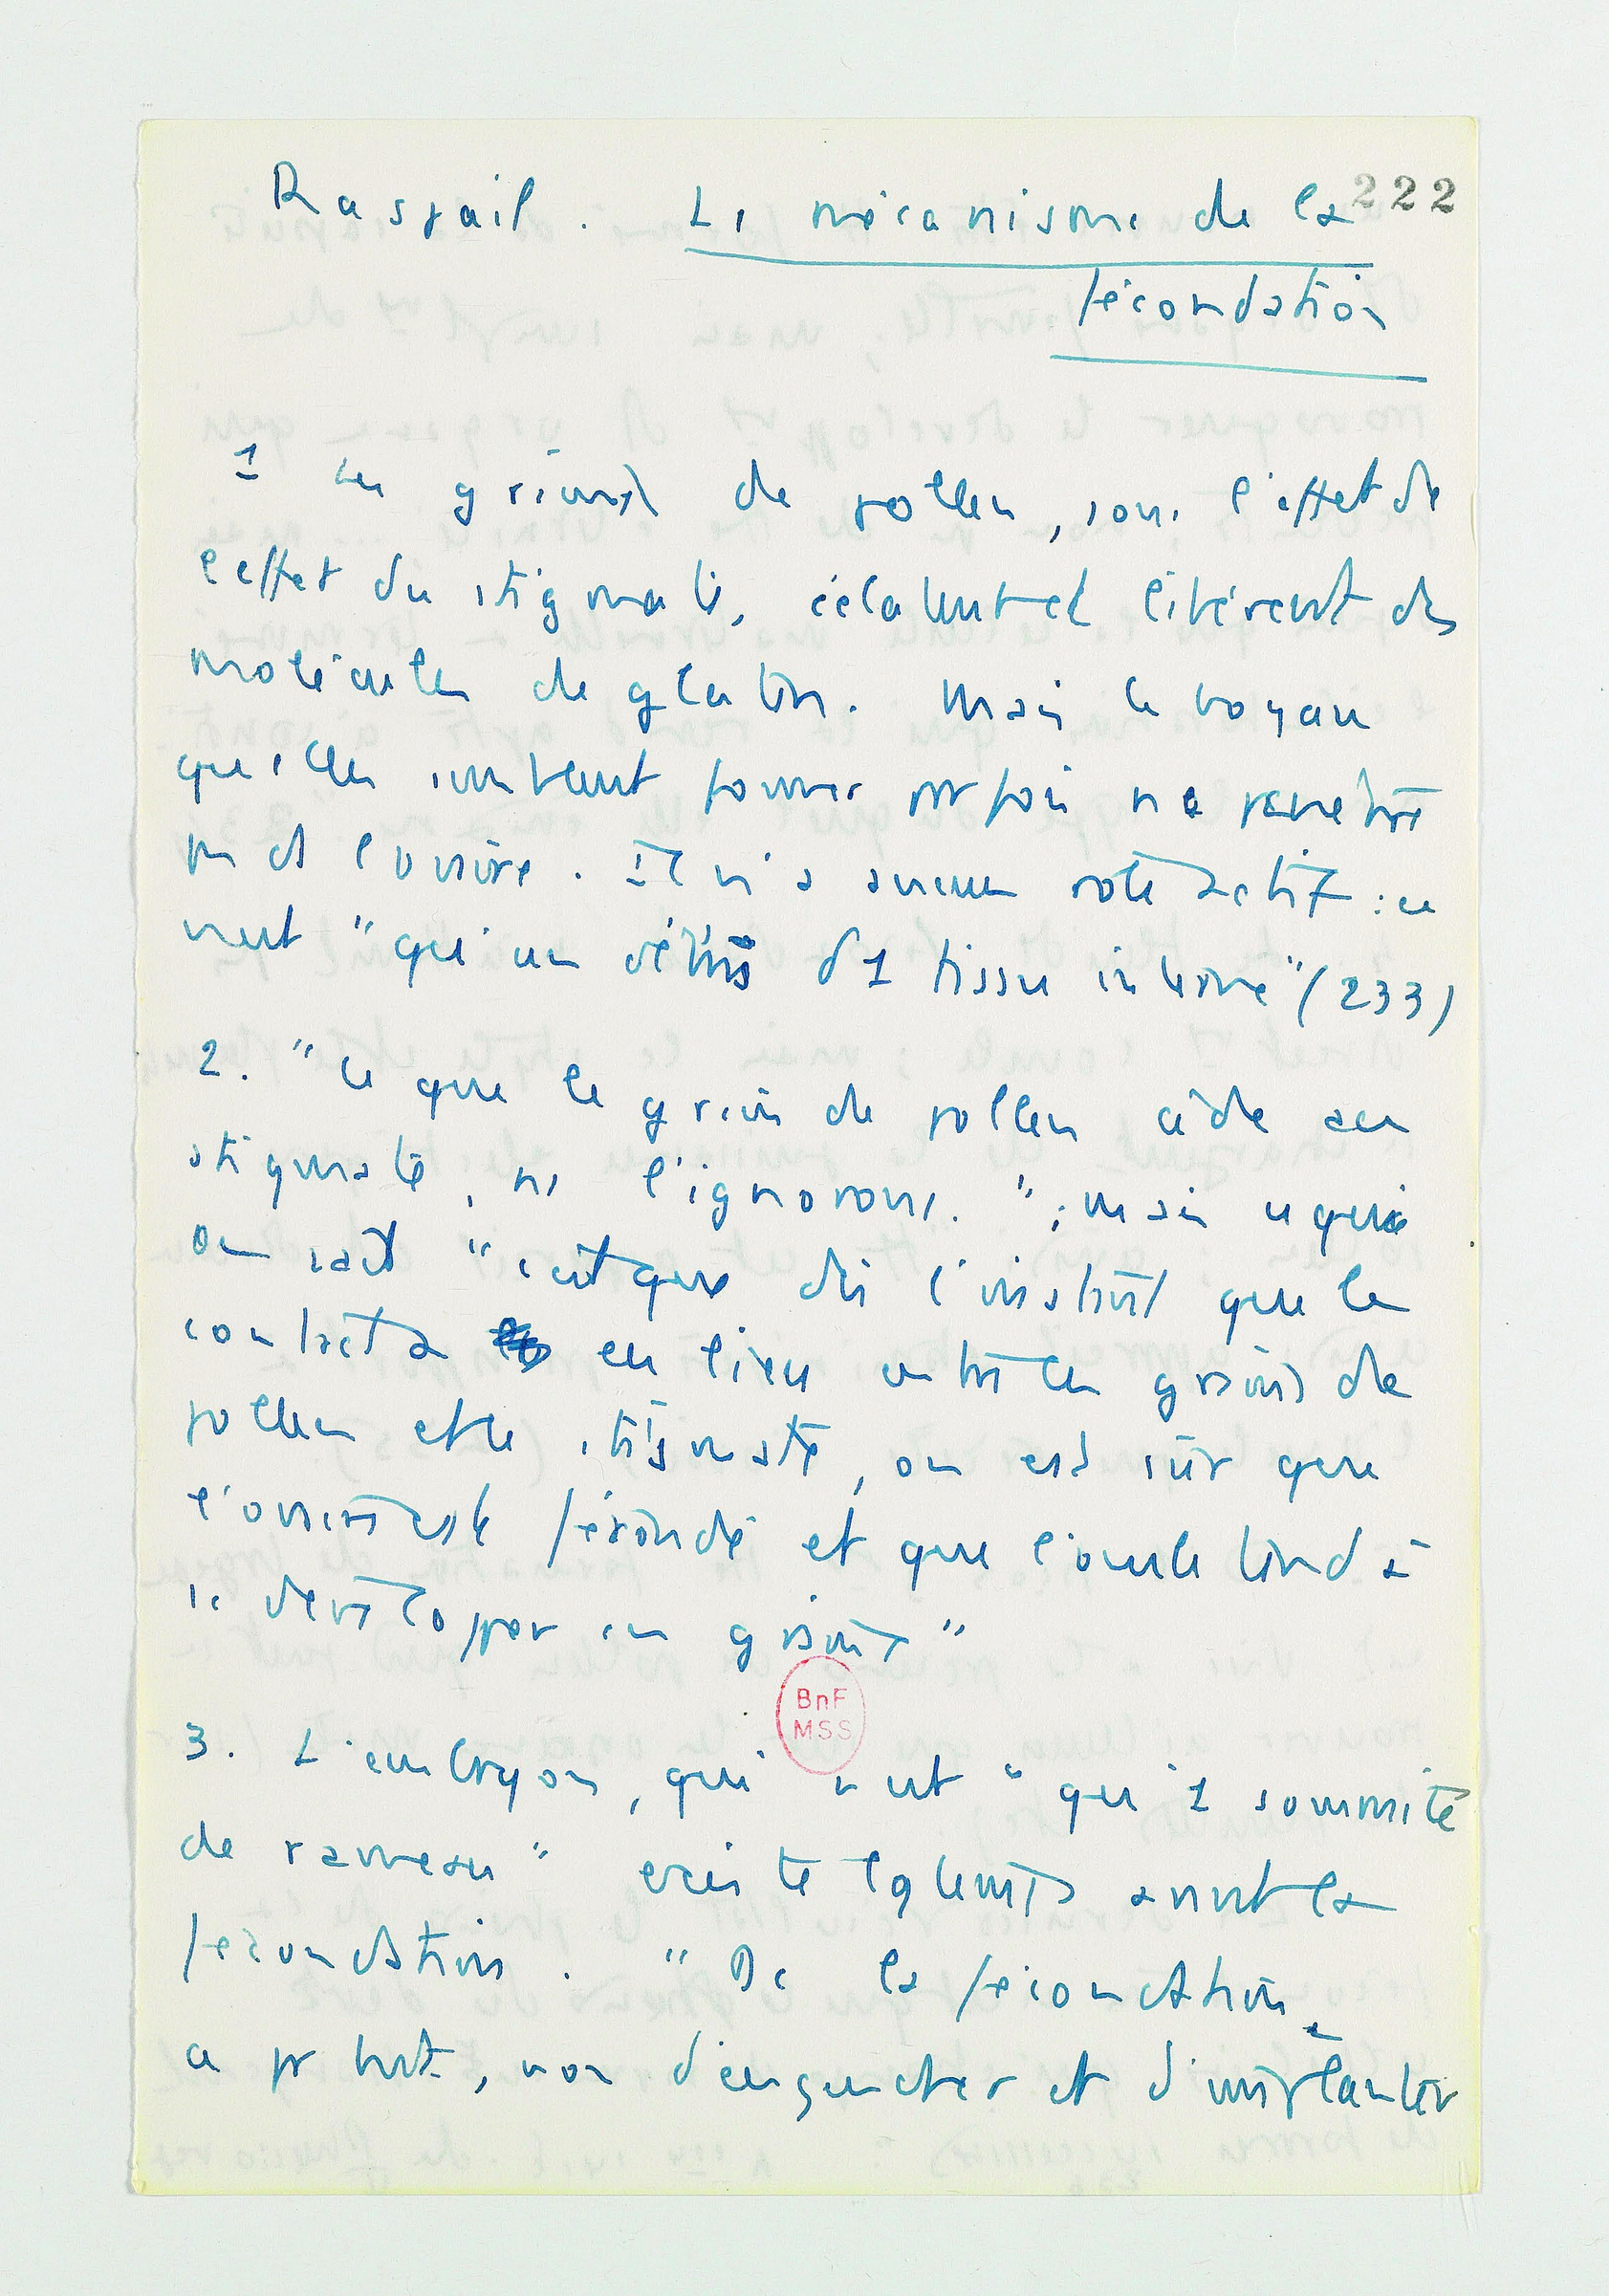 Raspail. Le mécanisme de la 222
fécondation
1 Les grains de pollen, sous l'effet de
l'effet du stigmate, éclatent et libèrent des
molécules de gluten. Mais le boyau
qu'elles semblent former parfois ne pénètre
pas ds l'ovaire. Il n'a aucun rôle actif : ce
n'est "qu'un débris d'1 tissu interne" (233)
2. "Ce que le grain de pollen cède au
stigmate, ns l'ignorons." ; mais ce que
on sait "c'est que dès l'instant que le
contact a eu lieu entre les grains de
pollen et le stigmate, on est sûr que
l'ovaire est fécondé et que l'ovule tend à
se développer en graine"
BnF
MSS
3. L'embryon, qui n'est "qu'1 sommité
de rameau" existe avant la
fécondation. "De la fécondation
a pr but, non d'engendrer et d'implanter